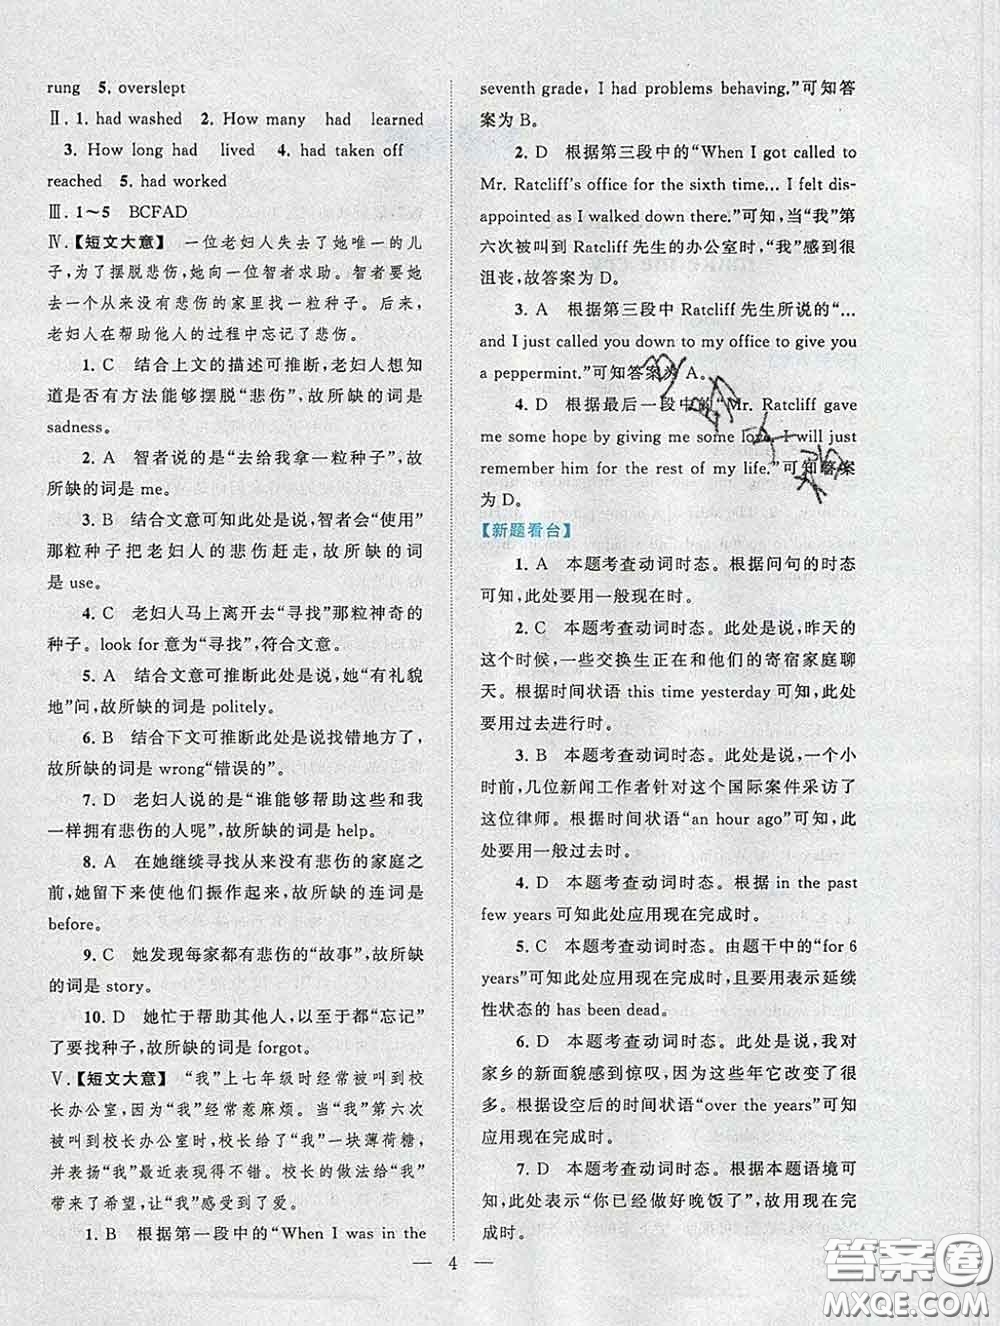 rung 5. overslept
Ⅱ. 1. had washed 2. How many had learned
3. How long had lived 4. had taken off
reached 5. had worked
Ⅲ. 1~5 BCFAD
Ⅳ.【短文大意】 一位老妇人失去了她唯一的儿
子,为了摆脱悲伤,她向一位智者求助。智者要她
去一个从来没有悲伤的家里找一粒种子。后来,
老妇人在帮助他人的过程中忘记了悲伤。
1. C 结合上文的描述可推断,老妇人想知
道是否有方法能够摆脱“悲伤”,故所缺的词是
sadness。
2. A 智者说的是“去给我拿一粒种子”,故
所缺的词是 me。
3. B 结合文意可知此处是说,智者会“使用”
那粒种子把老妇人的悲伤赶走,故所缺的词
是 use。
4. C 老妇人马上离开去“寻找”那粒神奇的
种子。look for 意为“寻找”,符合文意。
5. A 结合文意可推断此处是说,她“有礼貌
地”问,故所缺的词是 politely。
6. B 结合下文可推断此处是说找错地方了,
故所缺的词是 wrong“错误的”。
7. D 老妇人说的是“谁能够帮助这些和我
一样拥有悲伤的人呢”,故所缺的词是 help。
8. A 在她继续寻找从来没有悲伤的家庭之
前,她留下来使他们振作起来,故所缺的连词是
before。
9. C 她发现每家都有悲伤的“故事”,故所
缺的词是 story。
10. D 她忙于帮助其他人,以至于都“忘记”
了要找种子,故所缺的词是 forgot。
Ⅴ.【短文大意】 “我”上七年级时经常被叫到校
长办公室,因为“我”经常惹麻烦。当“我”第六次
被叫到校长办公室时,校长给了“我”一块薄荷糖,
并表扬“我”最近表现得不错。校长的做法给“我”
带来了希望,让“我”感受到了爱。
1. B 根据第一段中的“When I was in the
seventh grade, I had problems behaving.”可知答
案为 B。
2. D 根据第三段中的“When I got called to
Mr. Ratcliff’s office for the sixth time… I felt dis-
appointed as I walked down there.”可知,当“我”第
六次被叫到 Ratcliff 先生的办公室时,“我”感到很
沮丧,故答案为 D。
3. A 根据第三段中 Ratcliff 先生所说的“…
and I just called you down to my office to give you
a peppermint.”可知答案为 A。
4. D 根据最后一段中的“Mr. Ratcliff gave
me some hope by giving me some love. I will just
remember him for the rest of my life.”可知答案
为 D。
【新题看台】
1. A 本题考查动词时态。根据问句的时态
可知,此处要用一般现在时。
2. C 本题考查动词时态。此处是说,昨天的
这个时候,一些交换生正在和他们的寄宿家庭聊
天。根据时间状语 this time yesterday 可知,此处
要用过去进行时。
3. B 本题考查动词时态。此处是说,一个小
时前,几位新闻工作者针对这个国际案件采访了
这位律师。根据时间状语“an hour ago”可知,此
处要用一般过去时。
4. D 本题考查动词时态。根据 in the past
few years 可知此处应用现在完成时。
5. C 本题考查动词时态。由题干中的“for 6
years”可知此处应用现在完成时,且要用表示延续
性状态的 has been dead。
6. D 本题考查动词时态。此处是说,我对
家乡的新面貌感到惊叹,因为这些年它改变了很
多。根据设空后的时间状语“over the years”可知
应用现在完成时。
7. D 本题考查动词时态。根据本题语境可
知,此处表示“你已经做好晚饭了”,故用现在完
成时。
— 4 —
答案卷
MXQE.COM